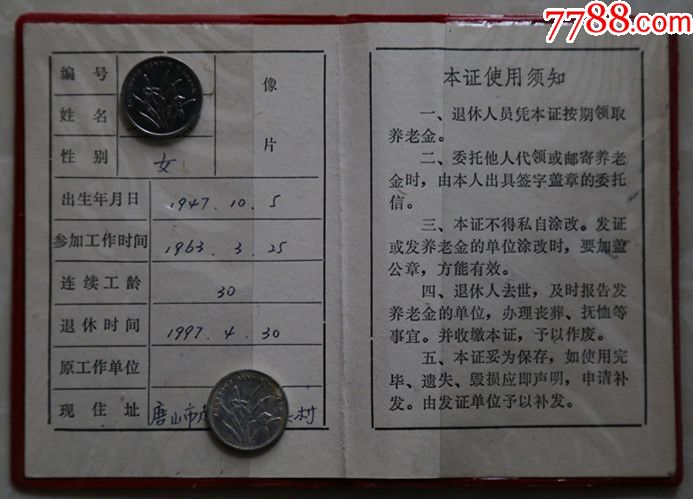 7788.com
编号
像
姓名
性别 女
片
出生年月日 1947.10.5
参加工作时间 1963.3.25
连续工龄 30
退休时间 1997.4.30
原工作单位
现住址 唐山市 村
本证使用须知
一、退休人员凭本证按期领取
养老金。
二、委托他人代领或邮寄养老
金时，由本人出具签字盖章的委托
信。
三、本证不得私自涂改。发证
或发养老金的单位涂改时，要加盖
公章，方能有效。
四、退休人去世，及时报告发
养老金的单位，办理丧葬、抚恤等
事宜。并收缴本证，予以作废。
五、本证妥为保存，如使用完
毕、遗失、毁损应即声明，申请补
发。由发证单位予以补发。